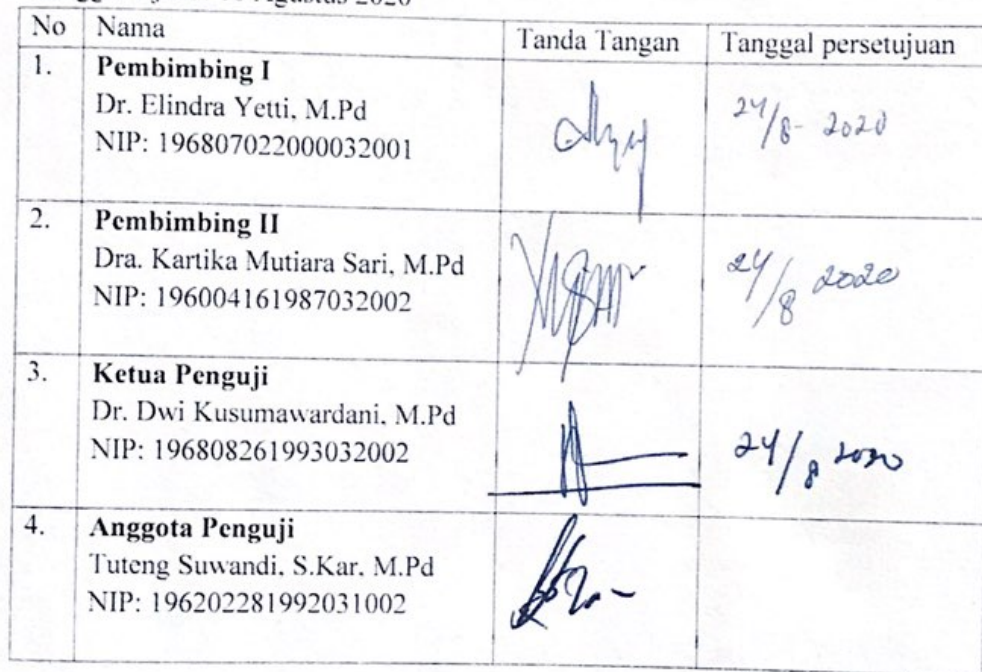 Agustus 2020
No Nama Tanda Tangan Tanggal persetujuan
1. Pembimbing I
Dr. Elindra Yetti, M.Pd
NIP: 196807022000032001
24/8- 2020
2. Pembimbing II
Dra. Kartika Mutiara Sari, M.Pd
NIP: 196004161987032002
24/8 2020
3. Ketua Penguji
Dr. Dwi Kusumawardani, M.Pd
NIP: 196808261993032002
24/8 2020
4. Anggota Penguji
Tuteng Suwandi, S.Kar. M.Pd
NIP: 196202281992031002